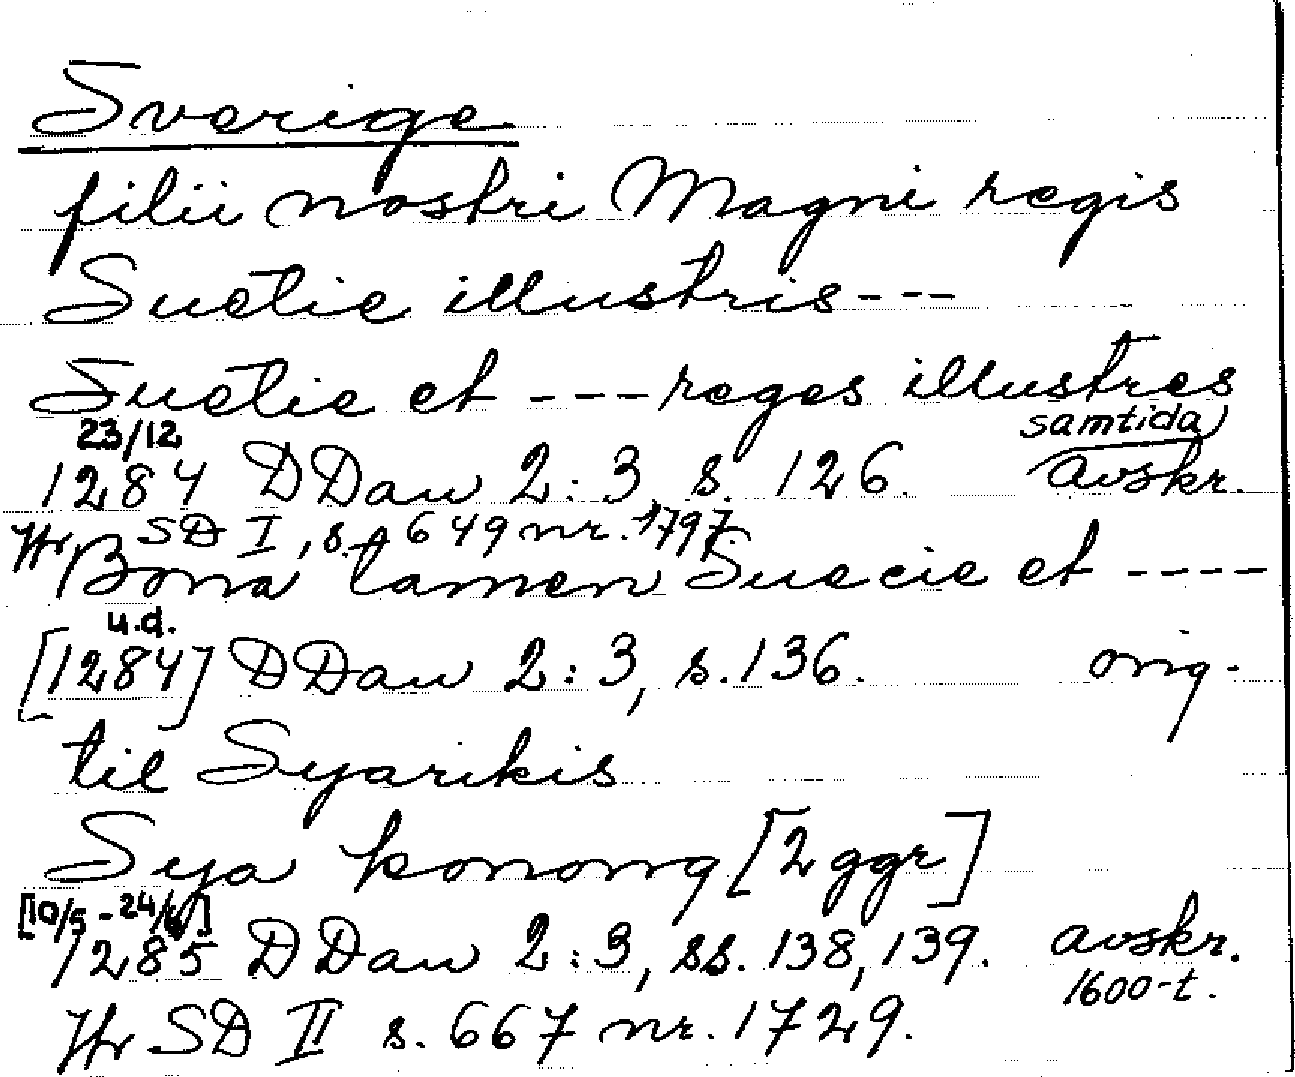 Sverige
filii nostri Magni regis
Suetie illustris---
Suetie et ---reges illustres
23/12 samtida
1284 DDan 2:3, s. 126. avskr.
Jfr SD I, s. 649 nr. 1797.
Bona tamen Suecie et ----
u.d.
[1284] DDan 2:3, s. 136. orig.
til Syarikis
Sya konong [2 ggr]
[10/5 - 24/6]
1285 DDan 2:3, ss. 138, 139. avskr.
1600-t.
Jfr SD II s. 667 nr. 1729.